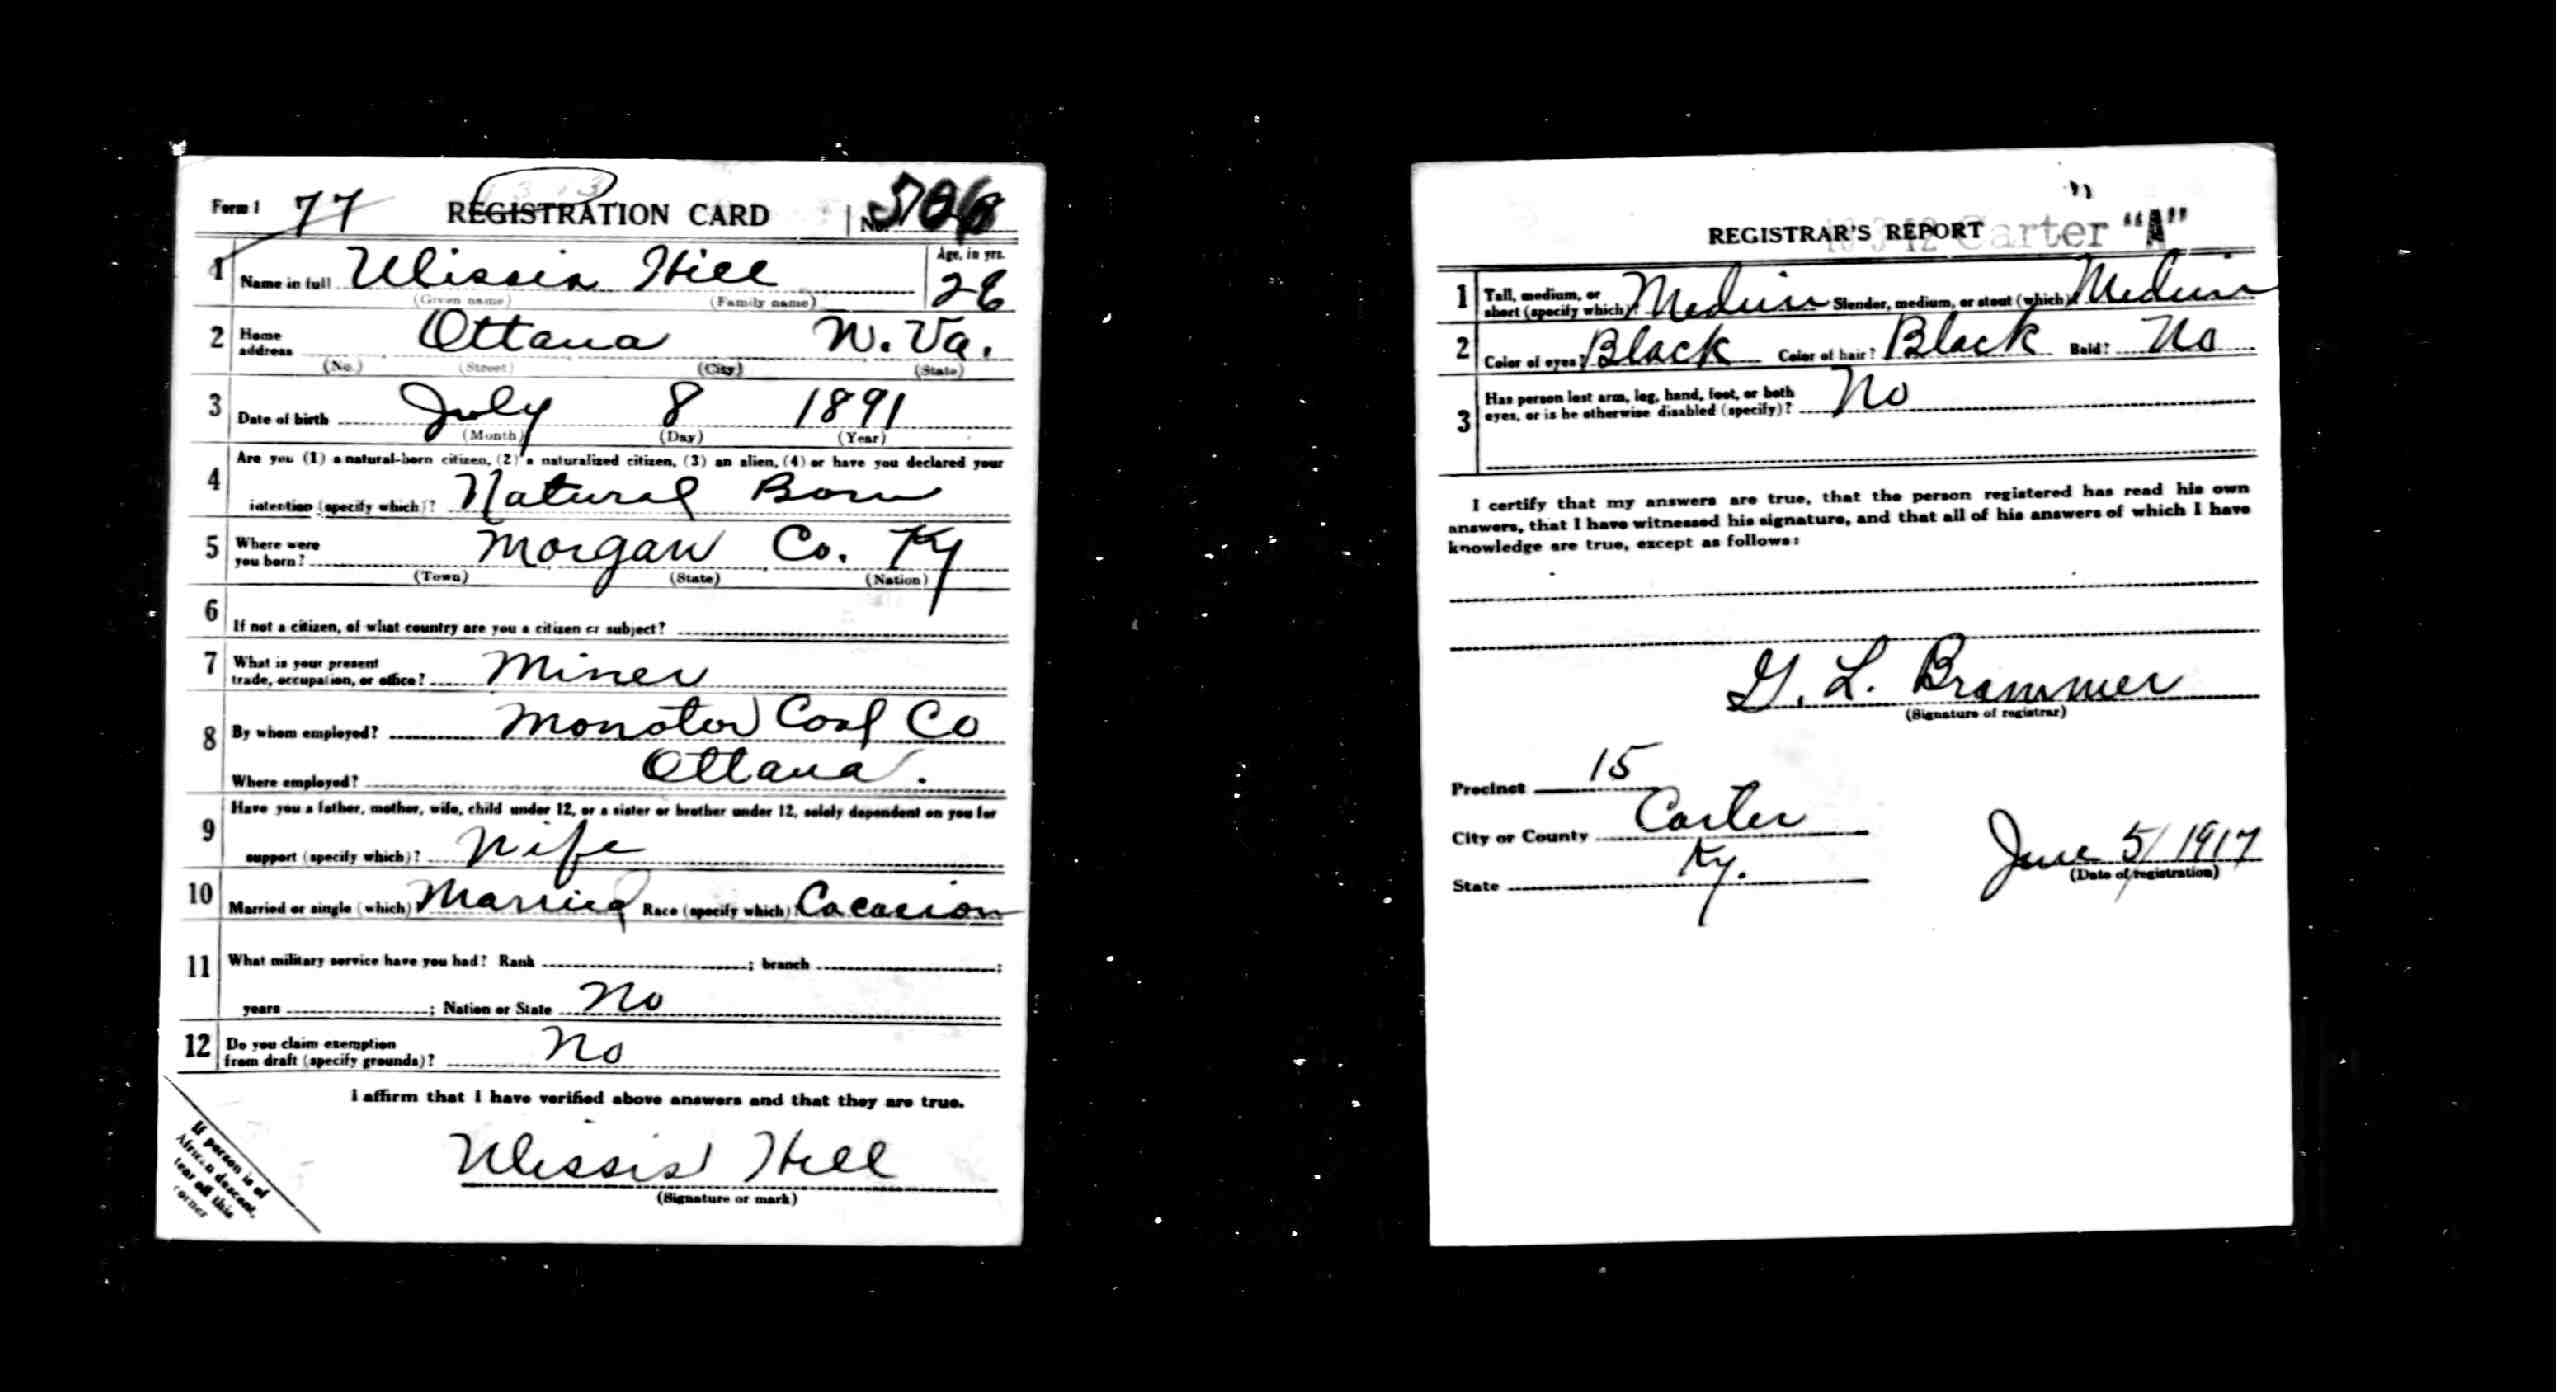 Form 1 77 REGISTRATION CARD No.
1 Name in full Ulissis Hill Age, in yrs. 26
(Given name) (Family name)
2 Home address Ottana W. Va.
(No.) (Street) (City) (State)
3 Date of birth July 8 1891
(Month) (Day) (Year)
4 Are you (1) a natural-born citizen, (2) a naturalized citizen, (3) an alien, (4) or have you declared your
intention (specify which)? Natural Born
5 Where were you born? Morgan Co. Ky
(Town) (State) (Nation)
6 If not a citizen, of what country are you a citizen or subject?
7 What is your present trade, occupation, or office? Miner
8 By whom employed? Monotor Coal Co
Where employed? Ottana.
9 Have you a father, mother, wife, child under 12, or a sister or brother under 12, solely dependent on you for
support (specify which)? Wife
10 Married or single (which)? Married Race (specify which)? Cacasion
11 What military service have you had? Rank ; branch ;
years ; Nation or State No
12 Do you claim exemption from draft (specify grounds)? No
I affirm that I have verified above answers and that they are true.
Ulissis Hill
(Signature or mark)
If person is of
African descent,
tear off this
corner
REGISTRAR'S REPORT Carter "A"
1 Tall, medium, or short (specify which)? Medium Slender, medium, or stout (which)? Medium
2 Color of eyes? Black Color of hair? Black Bald? No
3 Has person lost arm, leg, hand, foot, or both eyes, or is he otherwise disabled (specify)? No
I certify that my answers are true, that the person registered has read his own
answers, that I have witnessed his signature, and that all of his answers of which I have
knowledge are true, except as follows:
G. L. Brammer
(Signature of registrar)
Precinct 15
City or County Carter
State Ky.
June 5/1917
(Date of registration)